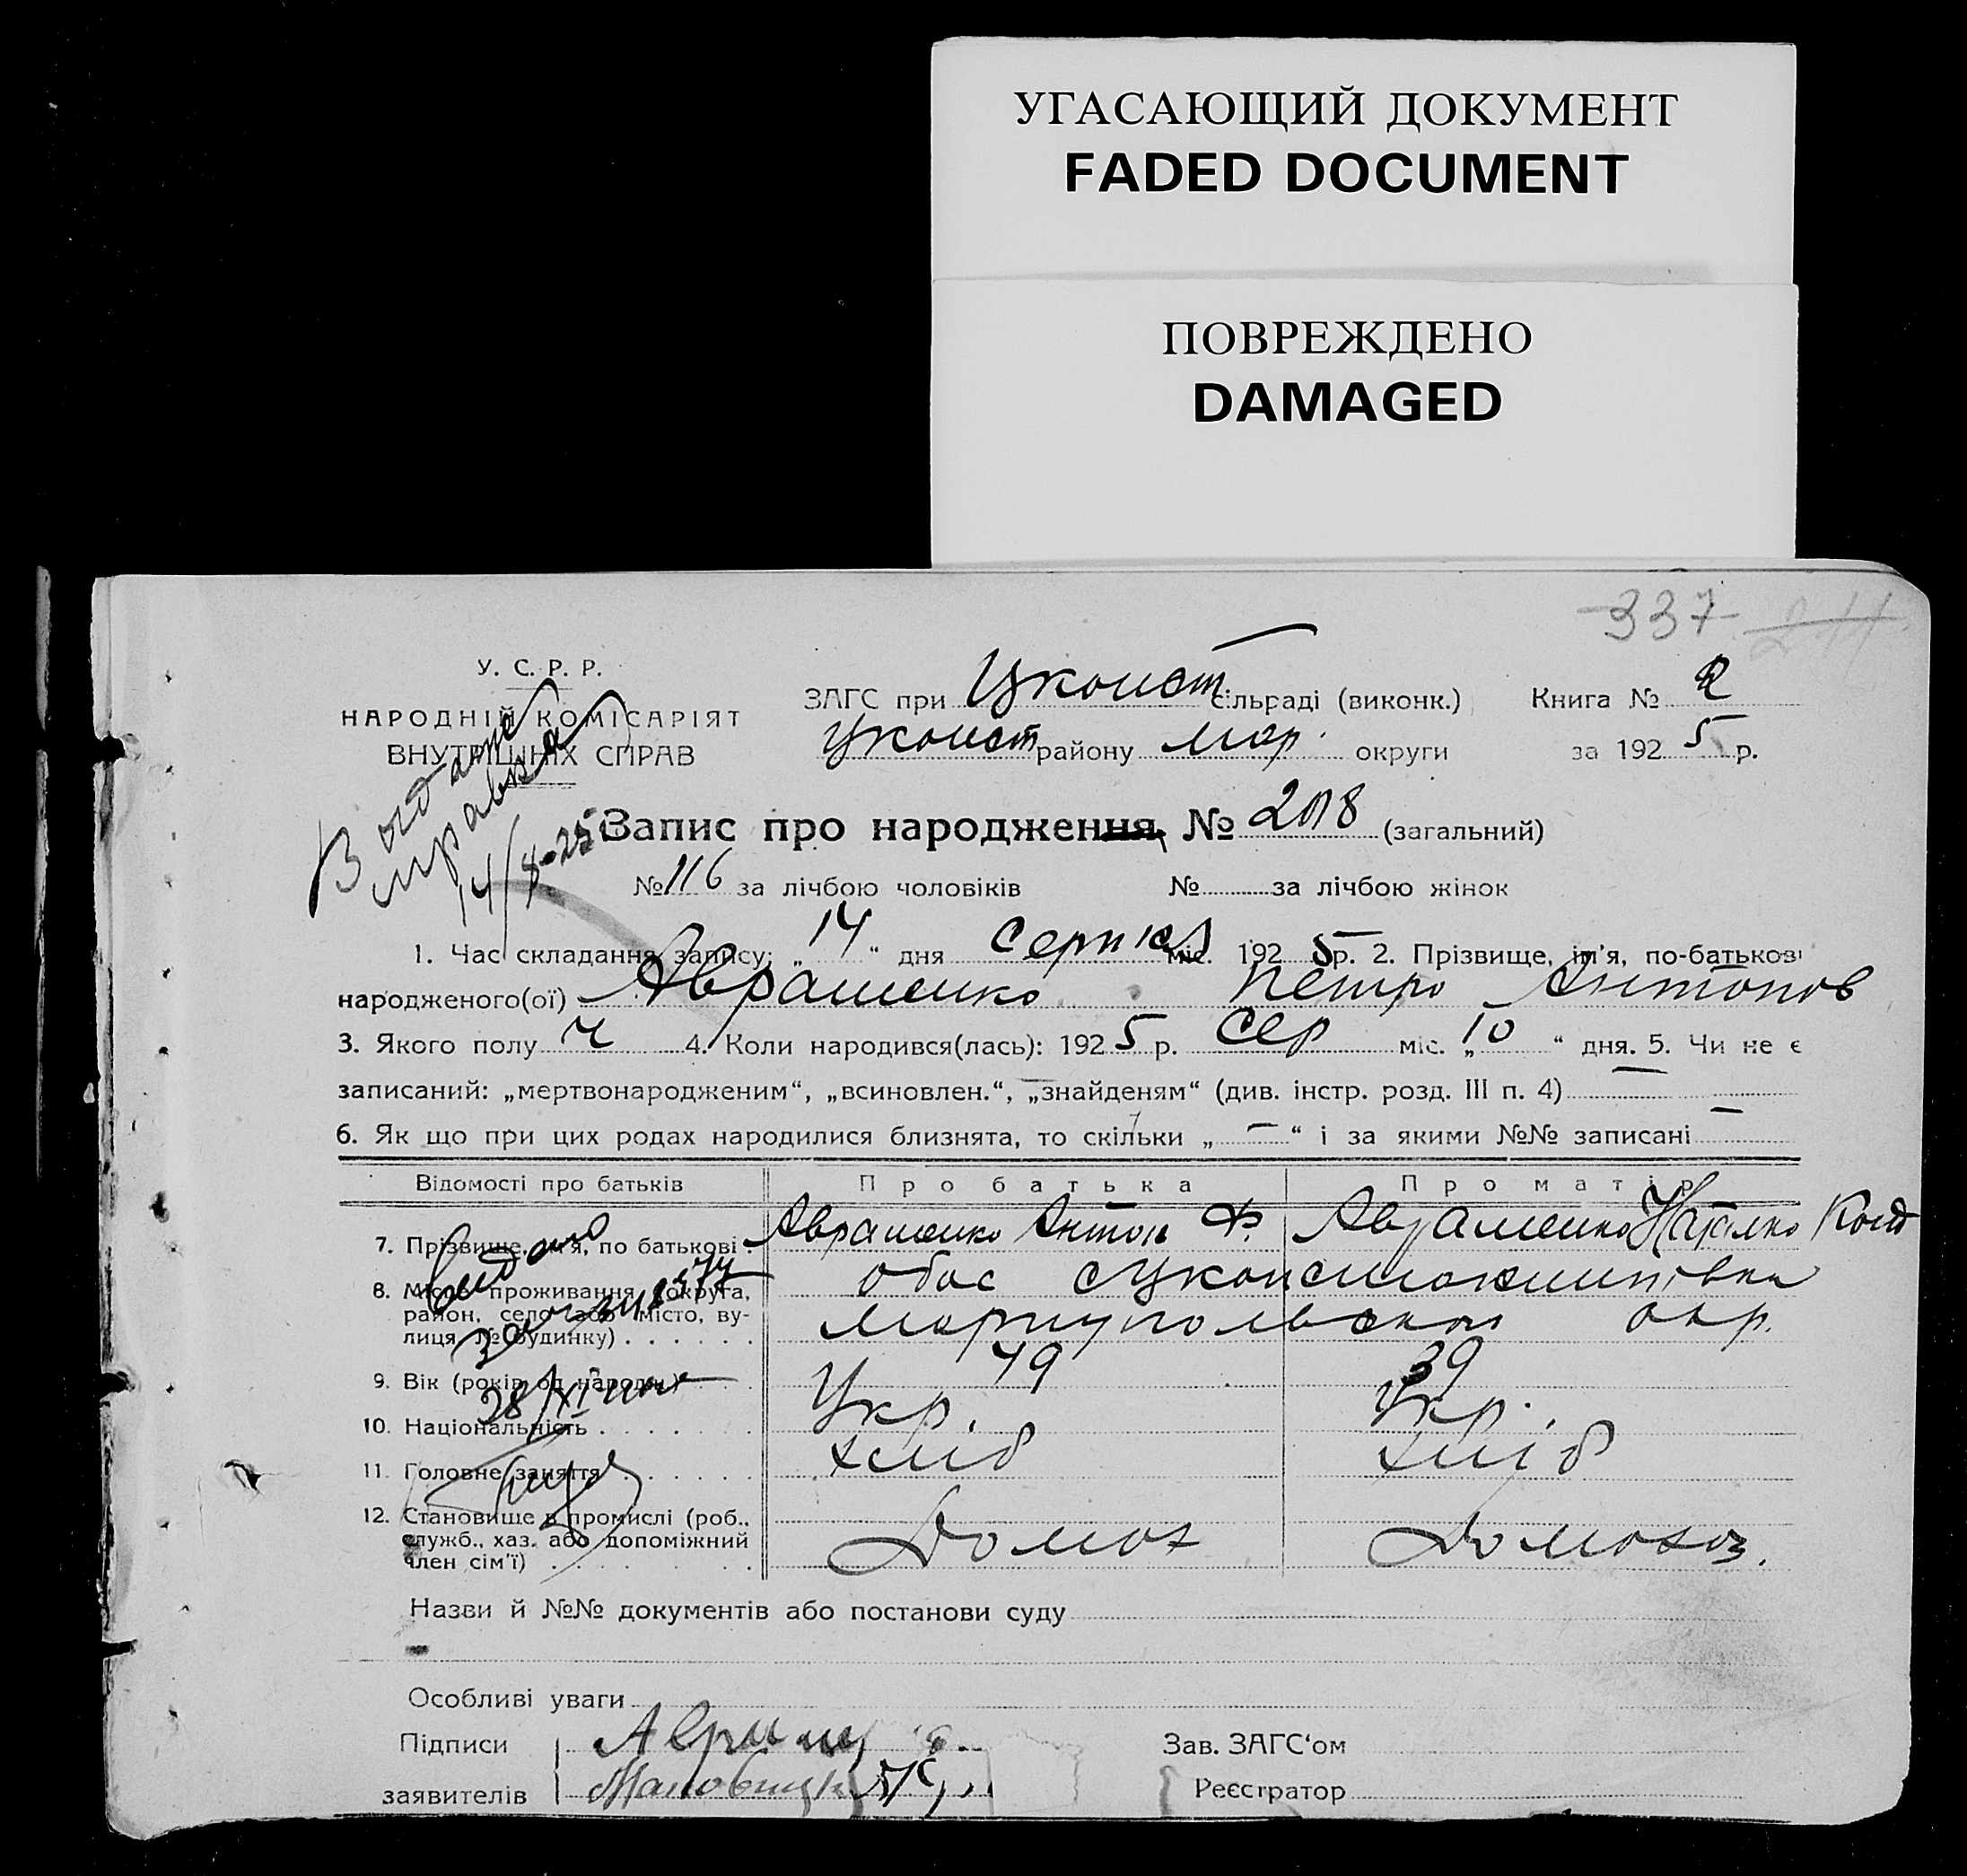 УГАСАЮЩИЙ ДОКУМЕНТ
FADED DOCUMENT
ПОВРЕЖДЕНО
DAMAGED
337
У. С. Р. Р.
НАРОДНІЙ КОМІСАРІЯТ
ВНУТРІШНІХ СПРАВ
ЗАГС при Уконст. сільраді (виконк.) Книга № 2
Уконст району Мар. округи за 1925 р.
Видана
справка
14/8-25
Запис про народження, № 208 (загальний)
№ 116 за лічбою чоловіків № за лічбою жінок
1. Час складання запису: „ 14 “ дня Серпня міс. 1925 р. 2. Прізвище, ім'я, по-батькові
народженого(ої) Авраменко Петро Антонов
3. Якого полу ч 4. Коли народився(лась): 1925 р. Сер міс. „ 10 “ дня. 5. Чи не є
записаний: „мертвонародженим“, „всиновлен.“, „знайденям“ (див. інстр. розд. III п. 4) —
6. Як що при цих родах народилися близнята, то скільки „ — “ і за якими №№ записані —
Відомості про батьків Про батька Про матір
7. Прізвище, ім'я, по батькові . Авраменко Антон Ф. Авраменко Конст
8. Місце проживання (округа,
район, село або місто, ву-
лиця, № будинку) . . . . . . Мариупольскои окр.
9. Вік (років од народж.) . . . 49 39
10. Національність . . . . . . Укр. Укр.
11. Головне заняття . . . . . . хліб хліб
12. Становище в промислі (роб.,
служб., хаз. або допоміжний
член сім'ї) . . . . . . Домох Домохоз.
Видано
28/XI
Назви й №№ документів або постанови суду
Особливі уваги
Підписи Зав. ЗАГС'ом
заявителів Реєстратор